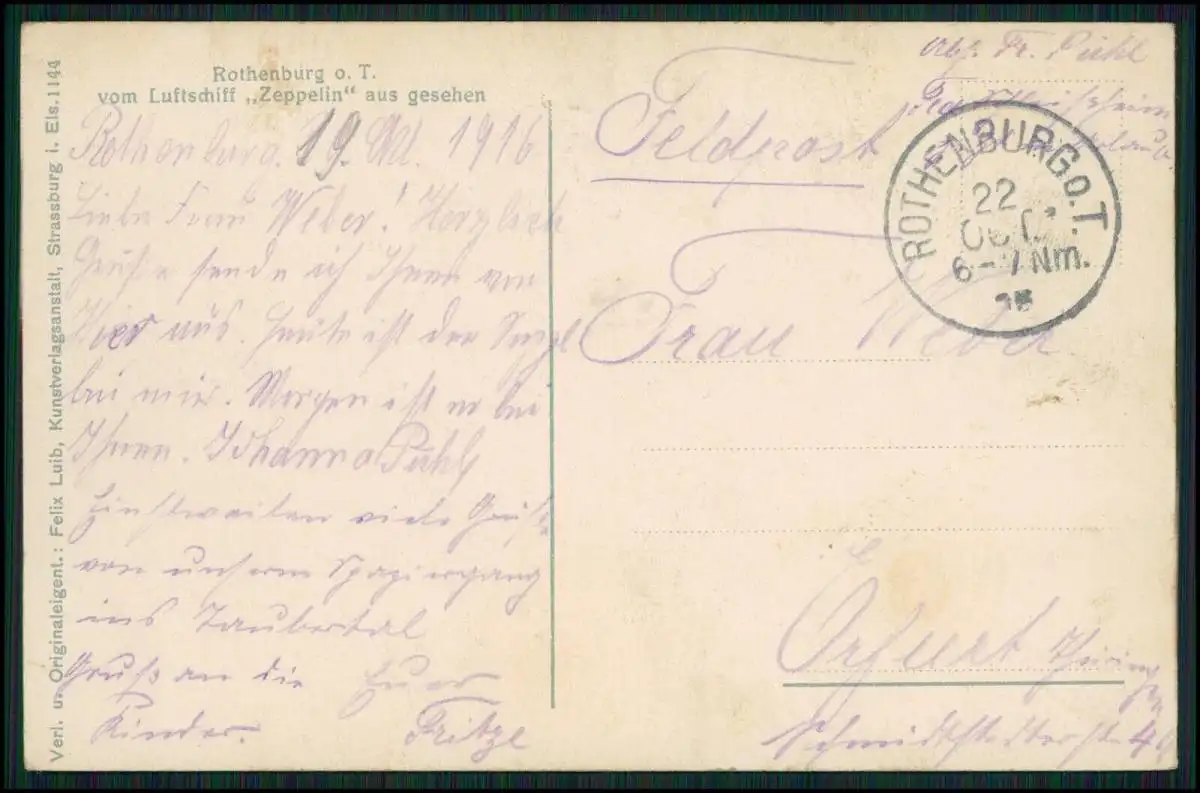 Rothenburg o. T.
vom Luftschiff „Zeppelin" aus gesehen
Rothenburg. 19. Okt. 1916
Liebe Frau Weber! Herzliche
Grüße sende ich Ihnen von
Hier aus. Heute ist der
bei mir. Morgen ist er bei
Ihnen. Johanna Pühl
Einstweilen viele Grüße
von unserem Spaziergang
ins Taubertal
Gruß an die Euer
Kinder. Fritze
Verl. u. Originaleigent.: Felix Luib, Kunstverlagsanstalt, Strassburg i. Els. 1144
Abs. Fr. Pühl
Feldpost
ROTHENBURG O. T.
22
OCT.
6-7 Nm.
Frau Weber
Erfurt Thüringen
Schmidtstedterstr.